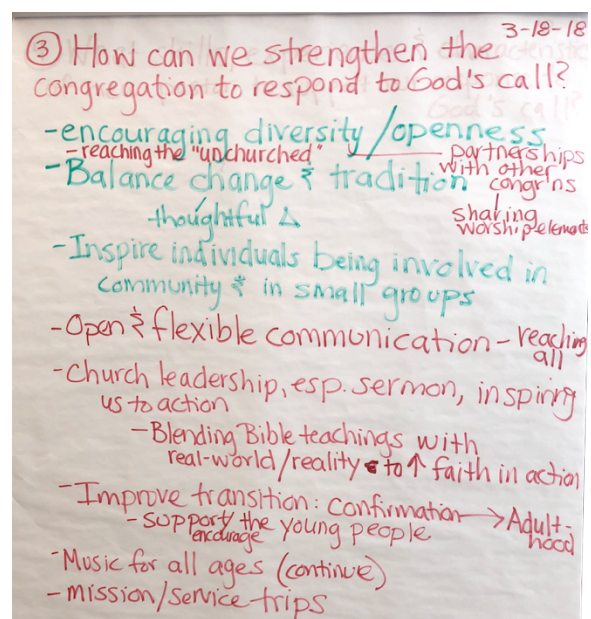 3-18-18
③ How can we strengthen the
congregation to respond to God's call?
-encouraging diversity/openness
-reaching the "unchurched"
partnerships
with other
congr'ns
sharing
worship elements
-Balance change & tradition
thoughtful △
-Inspire individuals being involved in
community & in small groups
-Open & flexible communication - reaching
all
-Church leadership, esp. sermon, inspiring
us to action
-Blending Bible teachings with
real-world/reality to ↑ faith in action
-Improve transition: confirmation → Adult-
hood
-support/ the young people
encourage
-Music for all ages (continue)
-mission/service trips